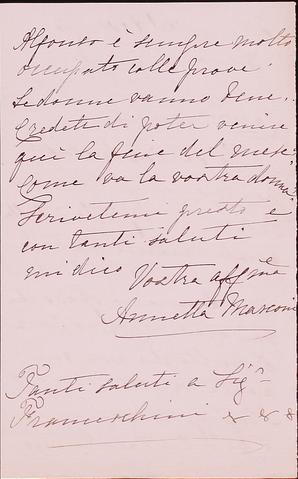 Alfonso è sempre molto
occupato colle prove.
Le donne vanno bene.
Credete di poter venire
quì la fine del mese?
Come va la vostra donna?
Scrivetemi presto e
con tanti saluti
mi dico Vostra affma
Annetta Marconi
Tanti saluti a Sigr
Franceschini & & &